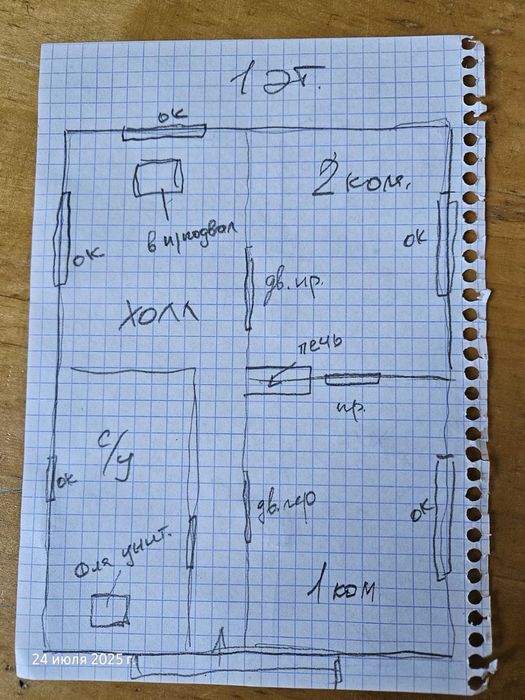 1 эт.
ок
2 ком.
в п/подвал
ок
ок
дв. пр.
холл
печь
пр.
с/у
ок
ок
дв. пер
Для унит.
1 ком
24 июля 2025 г